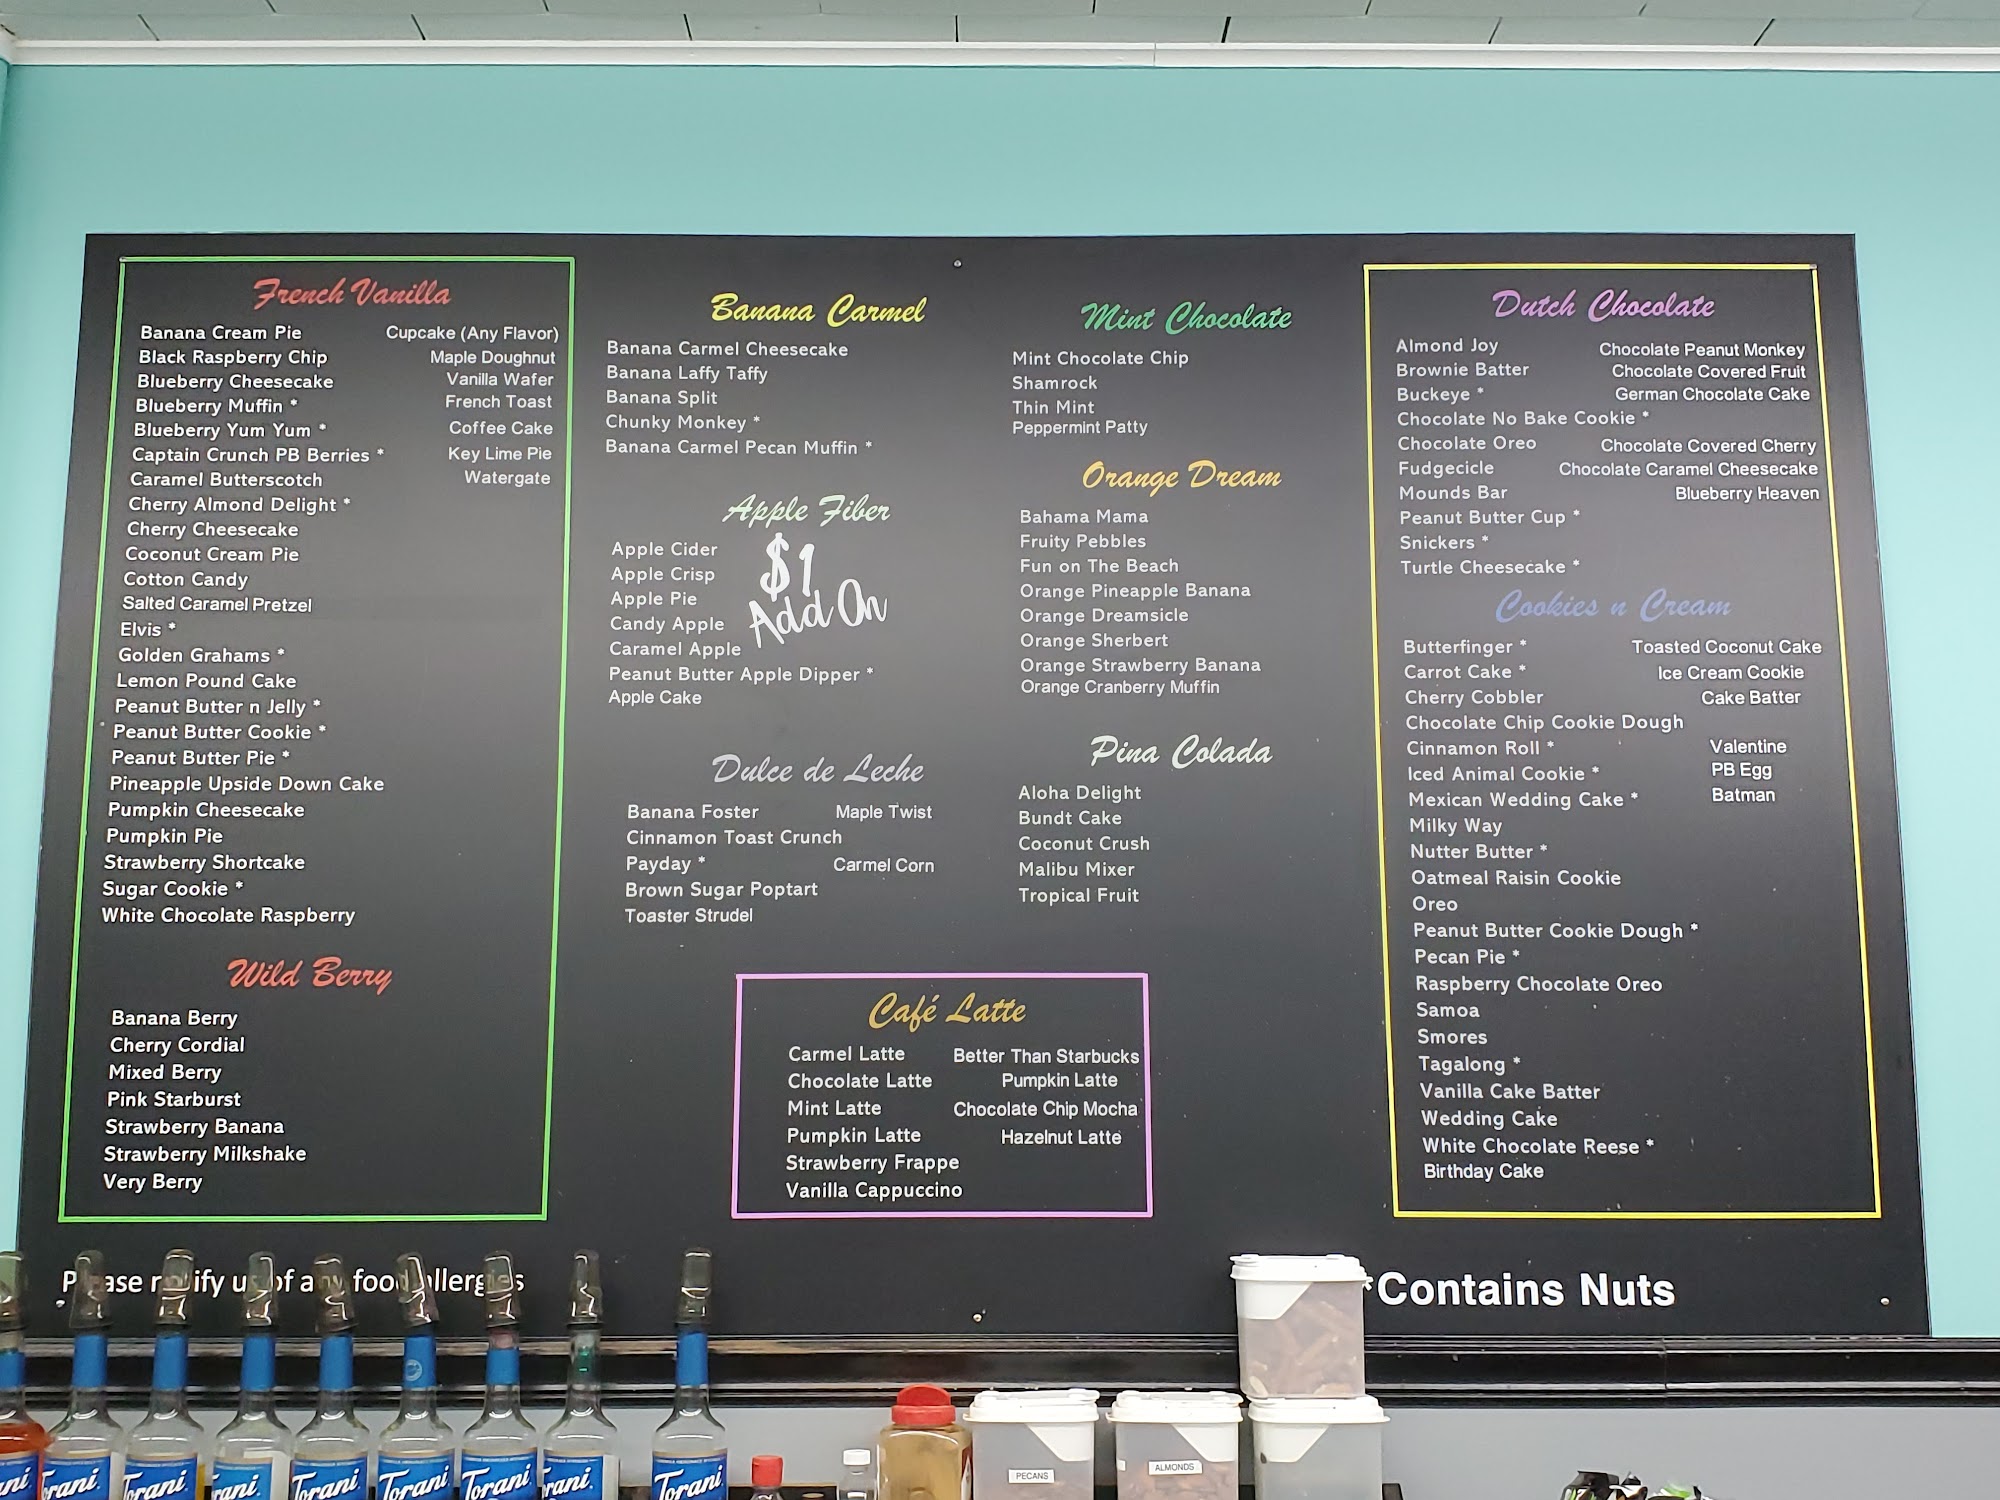 French Vanilla
Banana Cream Pie
Black Raspberry Chip
Blueberry Cheesecake
Blueberry Muffin *
Blueberry Yum Yum *
Captain Crunch PB Berries *
Caramel Butterscotch
Cherry Almond Delight *
Cherry Cheesecake
Coconut Cream Pie
Cotton Candy
Salted Caramel Pretzel
Elvis *
Golden Grahams *
Lemon Pound Cake
Peanut Butter n Jelly *
Peanut Butter Cookie *
Peanut Butter Pie *
Pineapple Upside Down Cake
Pumpkin Cheesecake
Pumpkin Pie
Strawberry Shortcake
Sugar Cookie *
White Chocolate Raspberry
Cupcake (Any Flavor)
Maple Doughnut
Vanilla Wafer
French Toast
Coffee Cake
Key Lime Pie
Watergate
Wild Berry
Banana Berry
Cherry Cordial
Mixed Berry
Pink Starburst
Strawberry Banana
Strawberry Milkshake
Very Berry
Banana Carmel
Banana Carmel Cheesecake
Banana Laffy Taffy
Banana Split
Chunky Monkey *
Banana Carmel Pecan Muffin *
Apple Fiber
Apple Cider
Apple Crisp
Apple Pie
Candy Apple
Caramel Apple
Peanut Butter Apple Dipper *
Apple Cake
$1
Add On
Dulce de Leche
Banana Foster
Cinnamon Toast Crunch
Payday *
Brown Sugar Poptart
Toaster Strudel
Maple Twist
Carmel Corn
Mint Chocolate
Mint Chocolate Chip
Shamrock
Thin Mint
Peppermint Patty
Orange Dream
Bahama Mama
Fruity Pebbles
Fun on The Beach
Orange Pineapple Banana
Orange Dreamsicle
Orange Sherbert
Orange Strawberry Banana
Orange Cranberry Muffin
Pina Colada
Aloha Delight
Bundt Cake
Coconut Crush
Malibu Mixer
Tropical Fruit
Café Latte
Carmel Latte
Chocolate Latte
Mint Latte
Pumpkin Latte
Strawberry Frappe
Vanilla Cappuccino
Better Than Starbucks
Pumpkin Latte
Chocolate Chip Mocha
Hazelnut Latte
Dutch Chocolate
Almond Joy
Brownie Batter
Buckeye *
Chocolate No Bake Cookie *
Chocolate Oreo
Fudgecicle
Mounds Bar
Peanut Butter Cup *
Snickers *
Turtle Cheesecake *
Chocolate Peanut Monkey
Chocolate Covered Fruit
German Chocolate Cake
Chocolate Covered Cherry
Chocolate Caramel Cheesecake
Blueberry Heaven
Cookies n Cream
Butterfinger *
Carrot Cake *
Cherry Cobbler
Chocolate Chip Cookie Dough
Cinnamon Roll *
Iced Animal Cookie *
Mexican Wedding Cake *
Milky Way
Nutter Butter *
Oatmeal Raisin Cookie
Oreo
Peanut Butter Cookie Dough *
Pecan Pie *
Raspberry Chocolate Oreo
Samoa
Smores
Tagalong *
Vanilla Cake Batter
Wedding Cake
White Chocolate Reese *
Birthday Cake
Toasted Coconut Cake
Ice Cream Cookie
Cake Batter
Valentine
PB Egg
Batman
Please notify us of any food allergies
*Contains Nuts
Torani
Torani
Torani
Torani
Torani
Torani
Torani
Torani
PECANS
ALMONDS